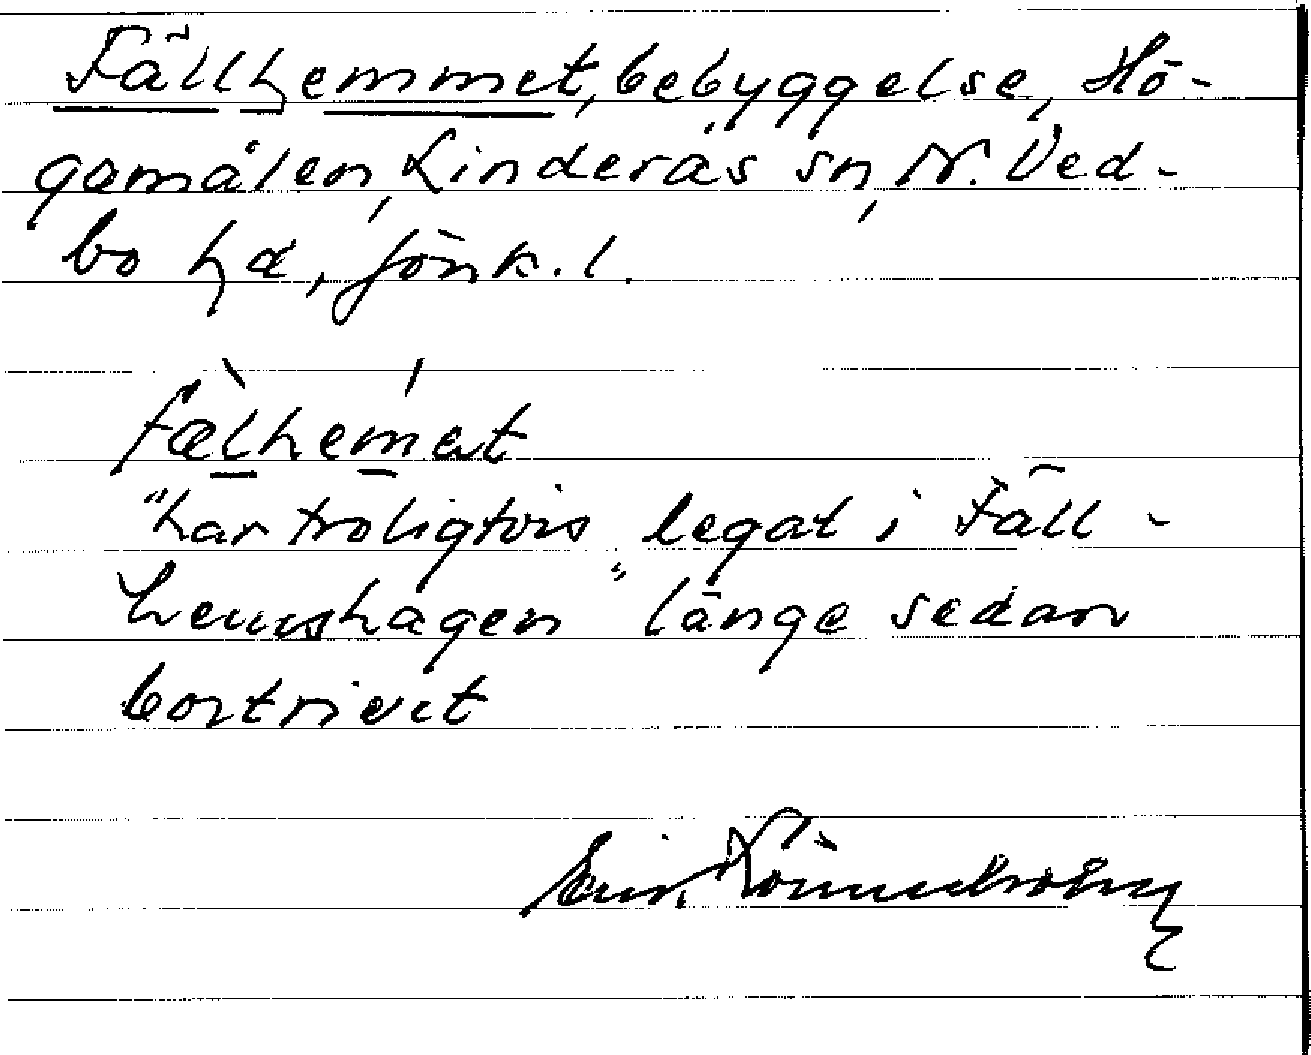 Fällhemmet, bebyggelse, Hö-
gamålen, Linderås sn, N. Ved-
bo hd, Jönk. l.
fæ̀lhemət
"har troligtvis legat i Fäll-
hemshagen" länge sedan
bortrivet
Erik